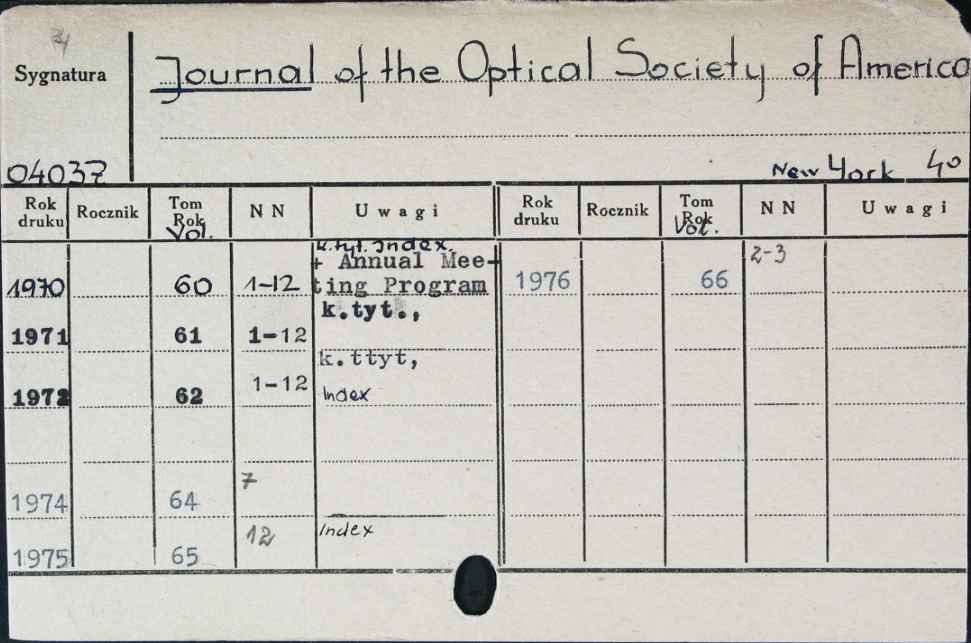 Sygnatura
Journal of the Optical Society of America
04037
New York 40
Rok druku Rocznik Tom Rok Vol. N N Uwagi Rok druku Rocznik Tom Rok Vol. N N Uwagi
k.tyt. Index
+ Annual Mee-
1970 60 1-12 ting Program 1976 66 2-3
k.tyt.,
1971 61 1-12
k.ttyt,
1972 62 1-12 Index
1974 64 7
1975 65 12 Index